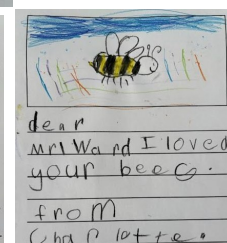 dear
Mrl Ward I loved
your bees.
from
Charlotte.